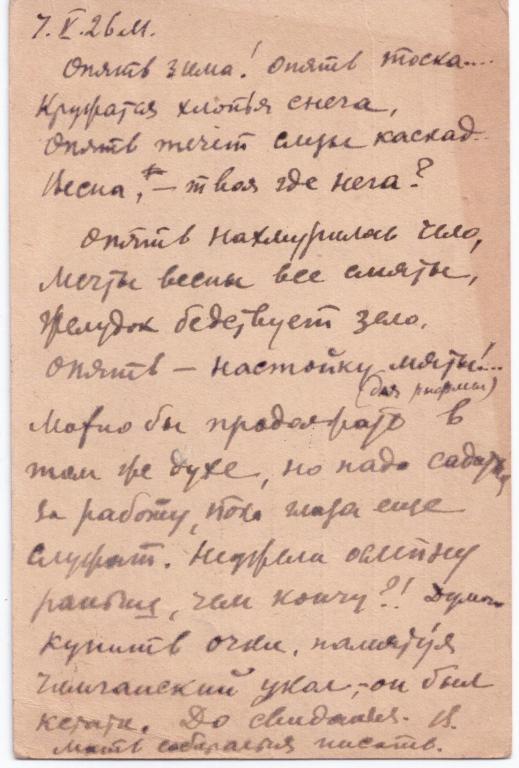 7.V.26 м.
Опять зима! Опять тоска....
Кружатся хлопья снега,
Опять течет слезы каскад..
Весна, – твоя где нега?
Опять нахмурилось чело,
Мечты весны все смяты,
Желудок бедствует зело,
Опять – настойку мяты!...
(для рифмы)
Можно бы продолжать в
том же духе, но надо садиться
за работу, пока глаза еще
служат. Неужели ослепну
раньше, чем кончу?! Думаю
купить очки, памятуя
укол, – он был
кстати. До свиданья. И.
Мать собирается писать.